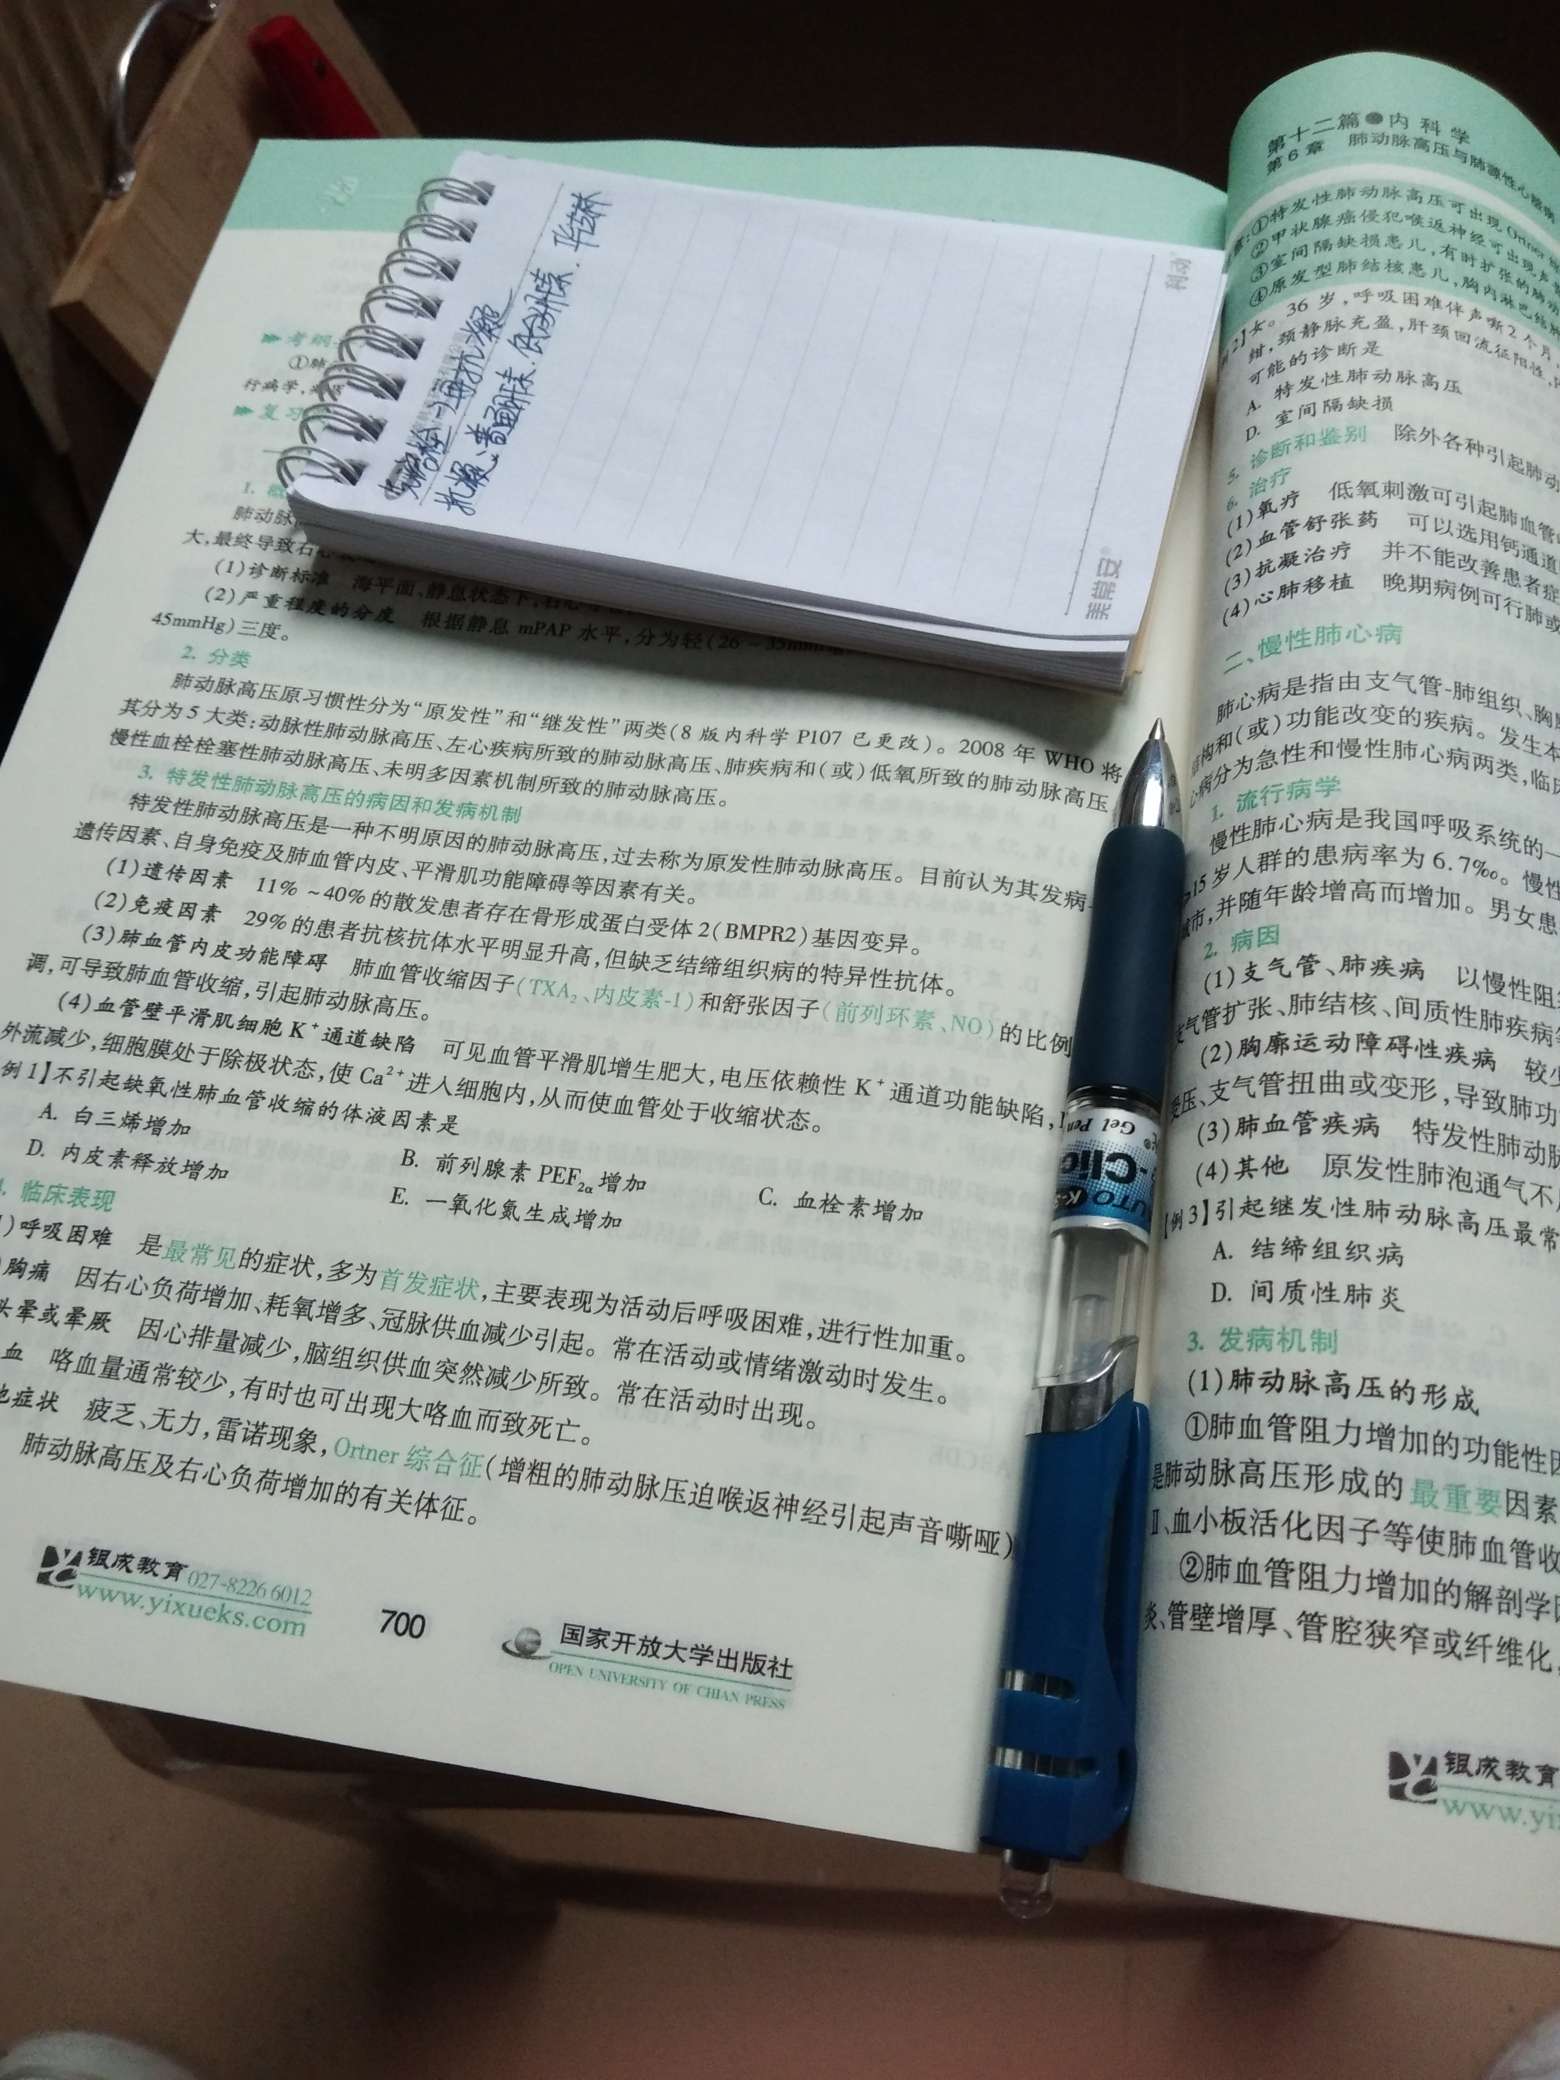 先溶栓→再抗凝
抗凝:普通肝素.低分子肝素.华法林
利动
美常安
考纲
①肺
行病学,
复习
1. 概
肺动脉
大,最终导致右心
(1)诊断标准 海平面、静息状态下,右心
(2)严重程度的分度 根据静息 mPAP 水平,分为轻(26~35mmHg
45mmHg)三度。
2. 分类
肺动脉高压原习惯性分为“原发性”和“继发性”两类(8 版内科学 P107 已更改)。2008 年 WHO 将
其分为 5 大类:动脉性肺动脉高压、左心疾病所致的肺动脉高压、肺疾病和(或)低氧所致的肺动脉高压、
慢性血栓栓塞性肺动脉高压、未明多因素机制所致的肺动脉高压。
3. 特发性肺动脉高压的病因和发病机制
特发性肺动脉高压是一种不明原因的肺动脉高压,过去称为原发性肺动脉高压。目前认为其发病与
遗传因素、自身免疫及肺血管内皮、平滑肌功能障碍等因素有关。
(1)遗传因素 11%~40%的散发患者存在骨形成蛋白受体 2(BMPR2)基因变异。
(2)免疫因素 29%的患者抗核抗体水平明显升高,但缺乏结缔组织病的特异性抗体。
(3)肺血管内皮功能障碍 肺血管收缩因子(TXA₂、内皮素-1)和舒张因子(前列环素、NO)的比例
调,可导致肺血管收缩,引起肺动脉高压。
(4)血管壁平滑肌细胞 K⁺通道缺陷 可见血管平滑肌增生肥大,电压依赖性 K⁺通道功能缺陷,
外流减少,细胞膜处于除极状态,使 Ca²⁺进入细胞内,从而使血管处于收缩状态。
例 1】不引起缺氧性肺血管收缩的体液因素是
A. 白三烯增加
B. 前列腺素 PEF₂α增加
C. 血栓素增加
D. 内皮素释放增加
E. 一氧化氮生成增加
4. 临床表现
)呼吸困难 是最常见的症状,多为首发症状,主要表现为活动后呼吸困难,进行性加重。
胸痛 因右心负荷增加、耗氧增多、冠脉供血减少引起。常在活动或情绪激动时发生。
头晕或晕厥 因心排量减少,脑组织供血突然减少所致。常在活动时出现。
血 咯血量通常较少,有时也可出现大咯血而致死亡。
他症状 疲乏、无力,雷诺现象,Ortner 综合征(增粗的肺动脉压迫喉返神经引起声音嘶哑)
肺动脉高压及右心负荷增加的有关体征。
银成教育 027-8226 6012
www.yixueks.com
700
国家开放大学出版社
OPEN UNIVERSITY OF CHIAN PRESS
Gel Pen
-Clic
AUTO K-
第十二篇 内科学
第 6 章 肺动脉高压与肺源性心脏病
①特发性肺动脉高压可出现 Ortner
②甲状腺癌侵犯喉返神经可出现声音
③室间隔缺损患儿,有时扩张的肺动
④原发型肺结核患儿,胸内淋巴结肿
例 2】女。36 岁,呼吸困难伴声嘶 2 个月,
绀,颈静脉充盈,肝颈回流征阳性,
可能的诊断是
A. 特发性肺动脉高压
D. 室间隔缺损
5. 诊断和鉴别 除外各种引起肺动
6. 治疗
(1)氧疗 低氧刺激可引起肺血管收
(2)血管舒张药 可以选用钙通道
(3)抗凝治疗 并不能改善患者症
(4)心肺移植 晚期病例可行肺或
二、慢性肺心病
肺心病是指由支气管-肺组织、胸
结构和(或)功能改变的疾病。发生本
心病分为急性和慢性肺心病两类,临床
1. 流行病学
慢性肺心病是我国呼吸系统的一
>15 岁人群的患病率为 6.7‰。慢性
城市,并随年龄增高而增加。男女患
2. 病因
(1)支气管、肺疾病 以慢性阻
支气管扩张、肺结核、间质性肺疾病等
(2)胸廓运动障碍性疾病 较少
受压、支气管扭曲或变形,导致肺功
(3)肺血管疾病 特发性肺动脉
(4)其他 原发性肺泡通气不
【例 3】引起继发性肺动脉高压最常
A. 结缔组织病
D. 间质性肺炎
3. 发病机制
(1)肺动脉高压的形成
①肺血管阻力增加的功能性因
是肺动脉高压形成的最重要因素
Ⅱ、血小板活化因子等使肺血管收
②肺血管阻力增加的解剖学因
炎、管壁增厚、管腔狭窄或纤维化,
银成教育
www.yi